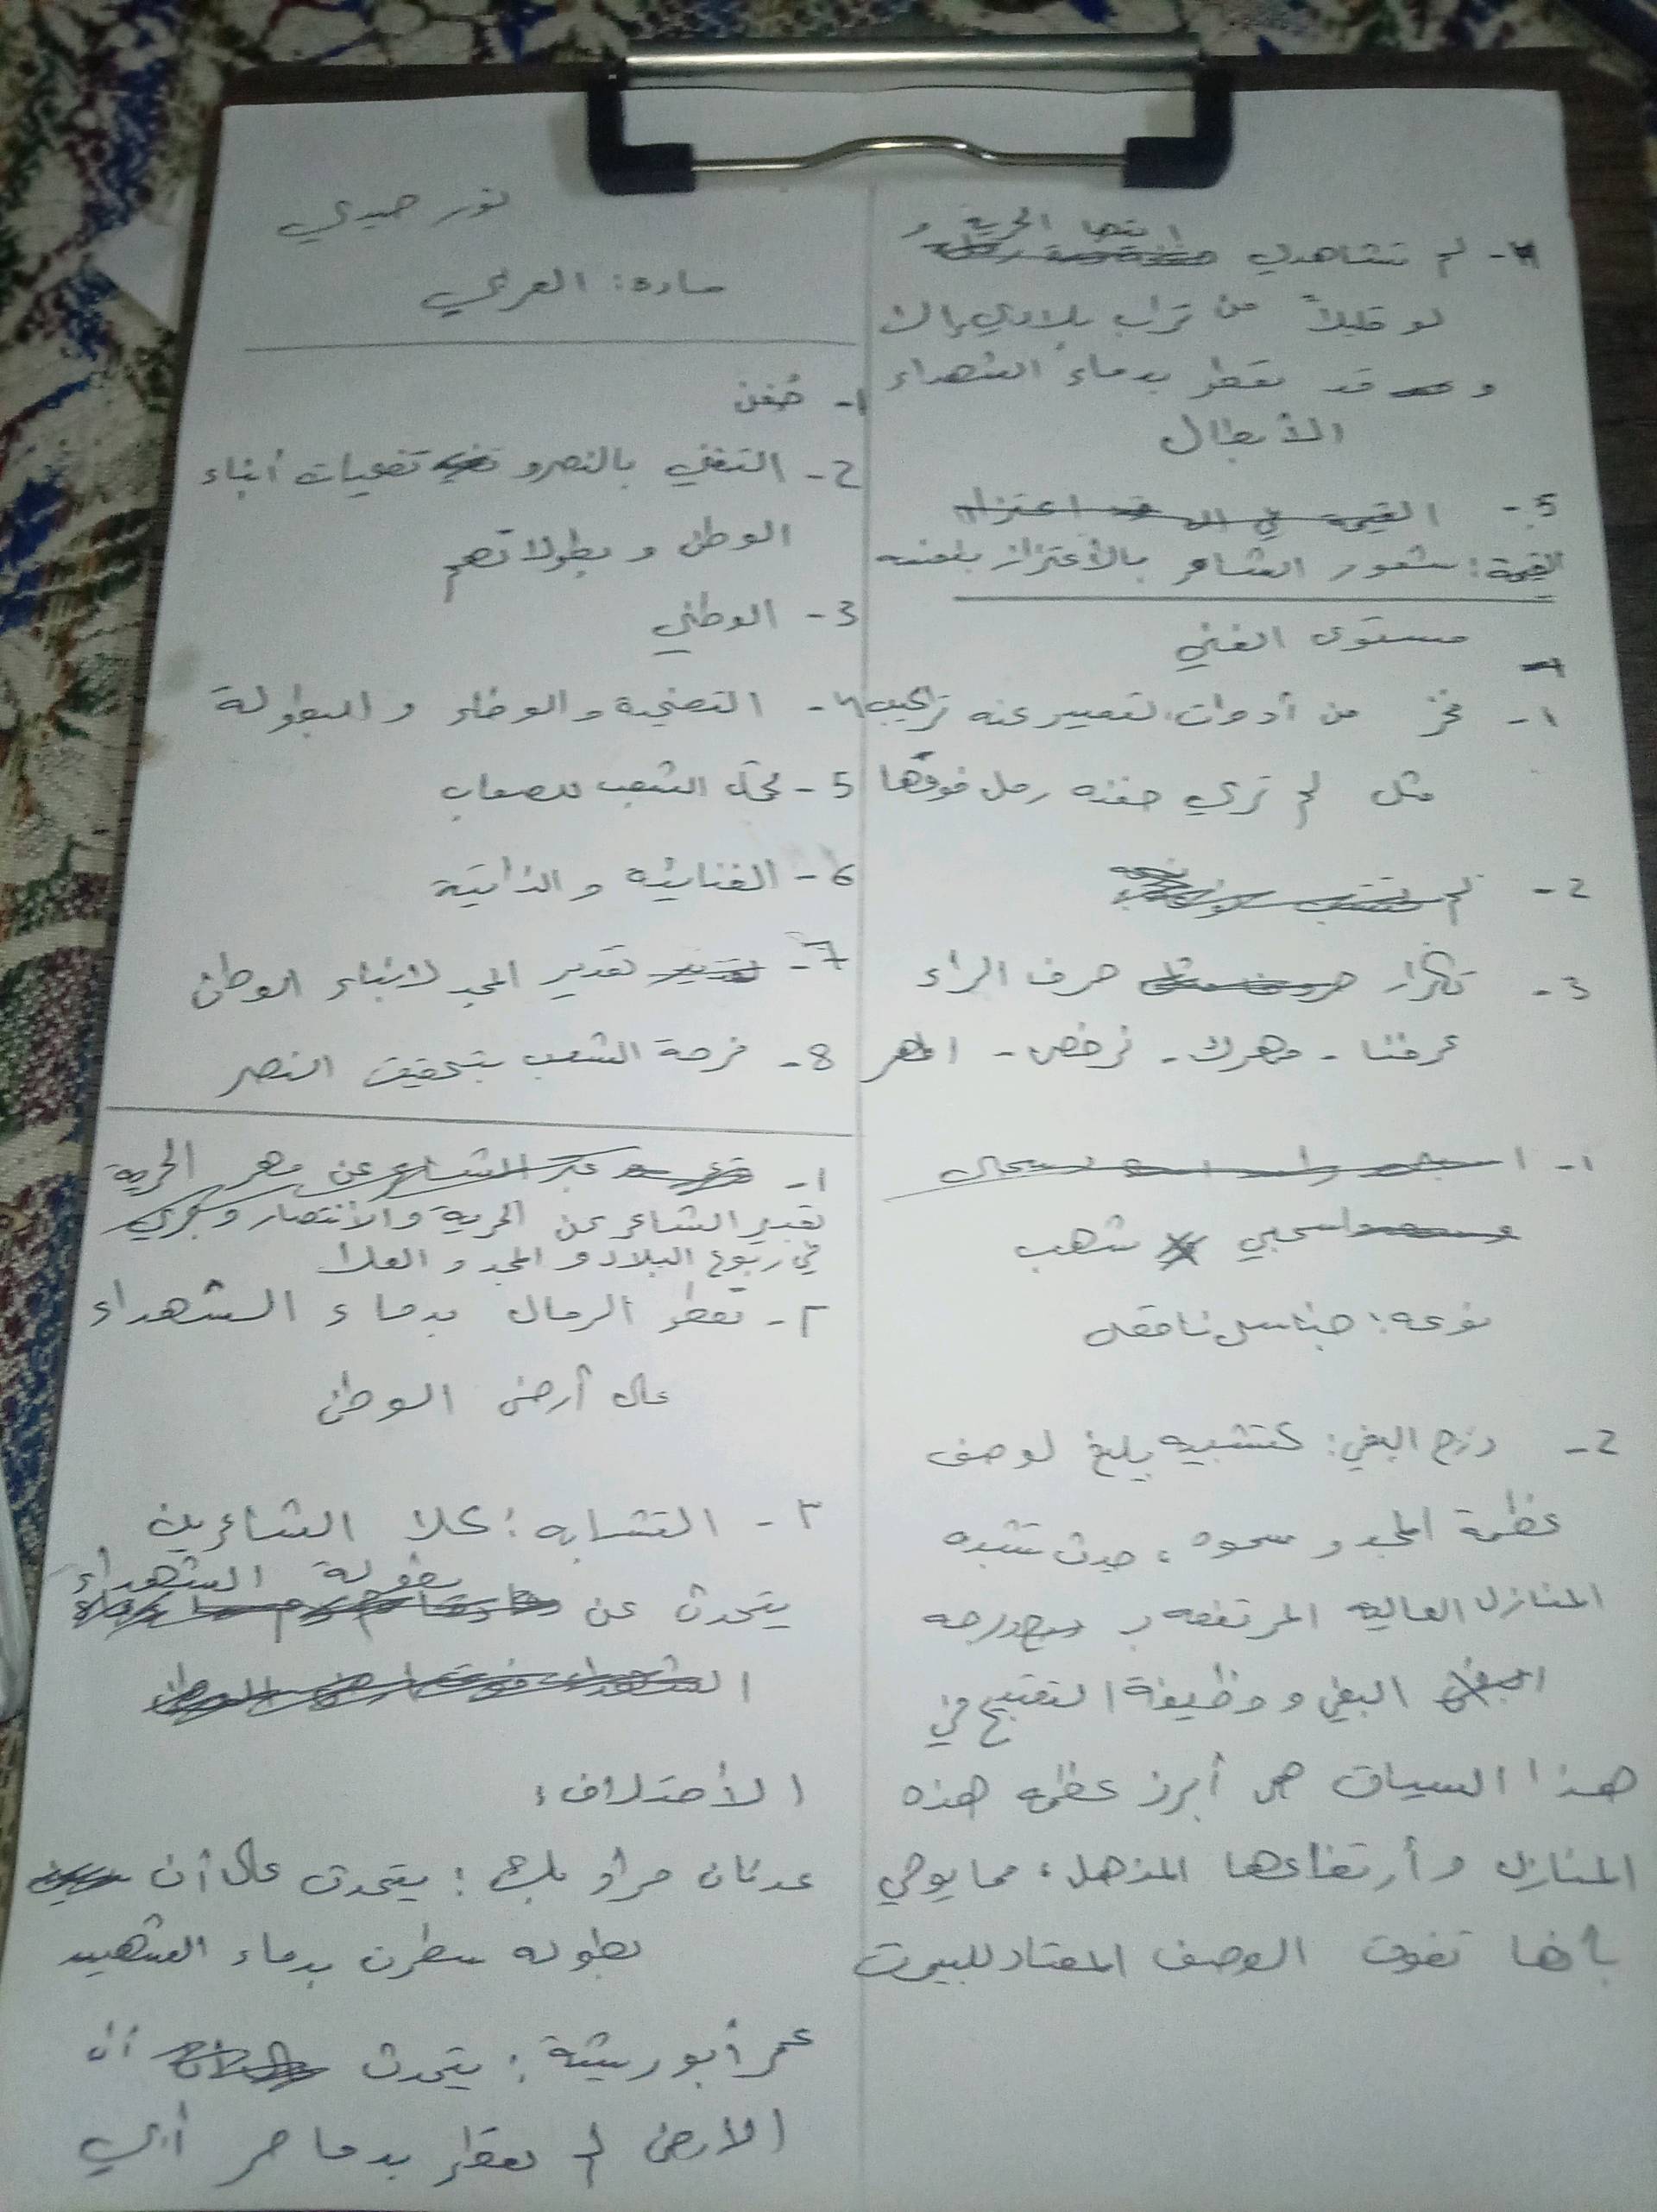 نور صيدي
مادة: العربي
1- ضغن
2- التغني بالنصر و تضحيات أبناء
الوطن و بطولاتهم
3- الوطني
4- التضحية والوفاء والبطولة
5- تحمّل الشعب للصعاب
6- الغنائية والذاتية
7- تقدير المجد لابناء الوطن
8- فرحة الشعب بتحقيق النصر
1-
تعبير الشاعر عن الحرية والأنتصار و
في ربوع البلاد و المجد و العلا
٢- تعطر الرمال بدماء الشهداء
على أرض الوطن
٣- التشابه: كلا الشاعرين
يتحدث عن بطولة الشهداء
الأختلاف:
عدنان مردم بك: يتحدث على أن
بطوله سطرت بدماء الشهيد
عمر أبو ريشة: يتحدث أن
الارض لم تعطر بدما حر أبي
4- لم تشاهدي ايتها الحرية و
لو قليلاً من تراب بلادي إلا
و قد تعطر بدماء الشهداء
الأبطال
5-
القيمة: شعور الشاعر بالأعتزاز بنفسه
مستوى الفني
1- فخر من أدوات التعبير عنه تراكيب
مثل لم تري حفنه رمل فوقها
2- لم
3- تكرار حرف الراء
عرفتنا - مهرك - نرخص - المهر
1-
اسحبي شهب
نوعه: جناس ناقص
2- درج البغي: كتشبيه بليغ لوصف
عظمة المجد و سموه، حيث تشبه
المنازل العاليه المرتفعه ب درجه
البغي و وظيفة التقبيح في
هذا السياق هي أبرز عظمه هذه
المنازل وأرتفاعها المذهل، مما يوحي
بأنها تفوق الوصف المعتاد للبيوت